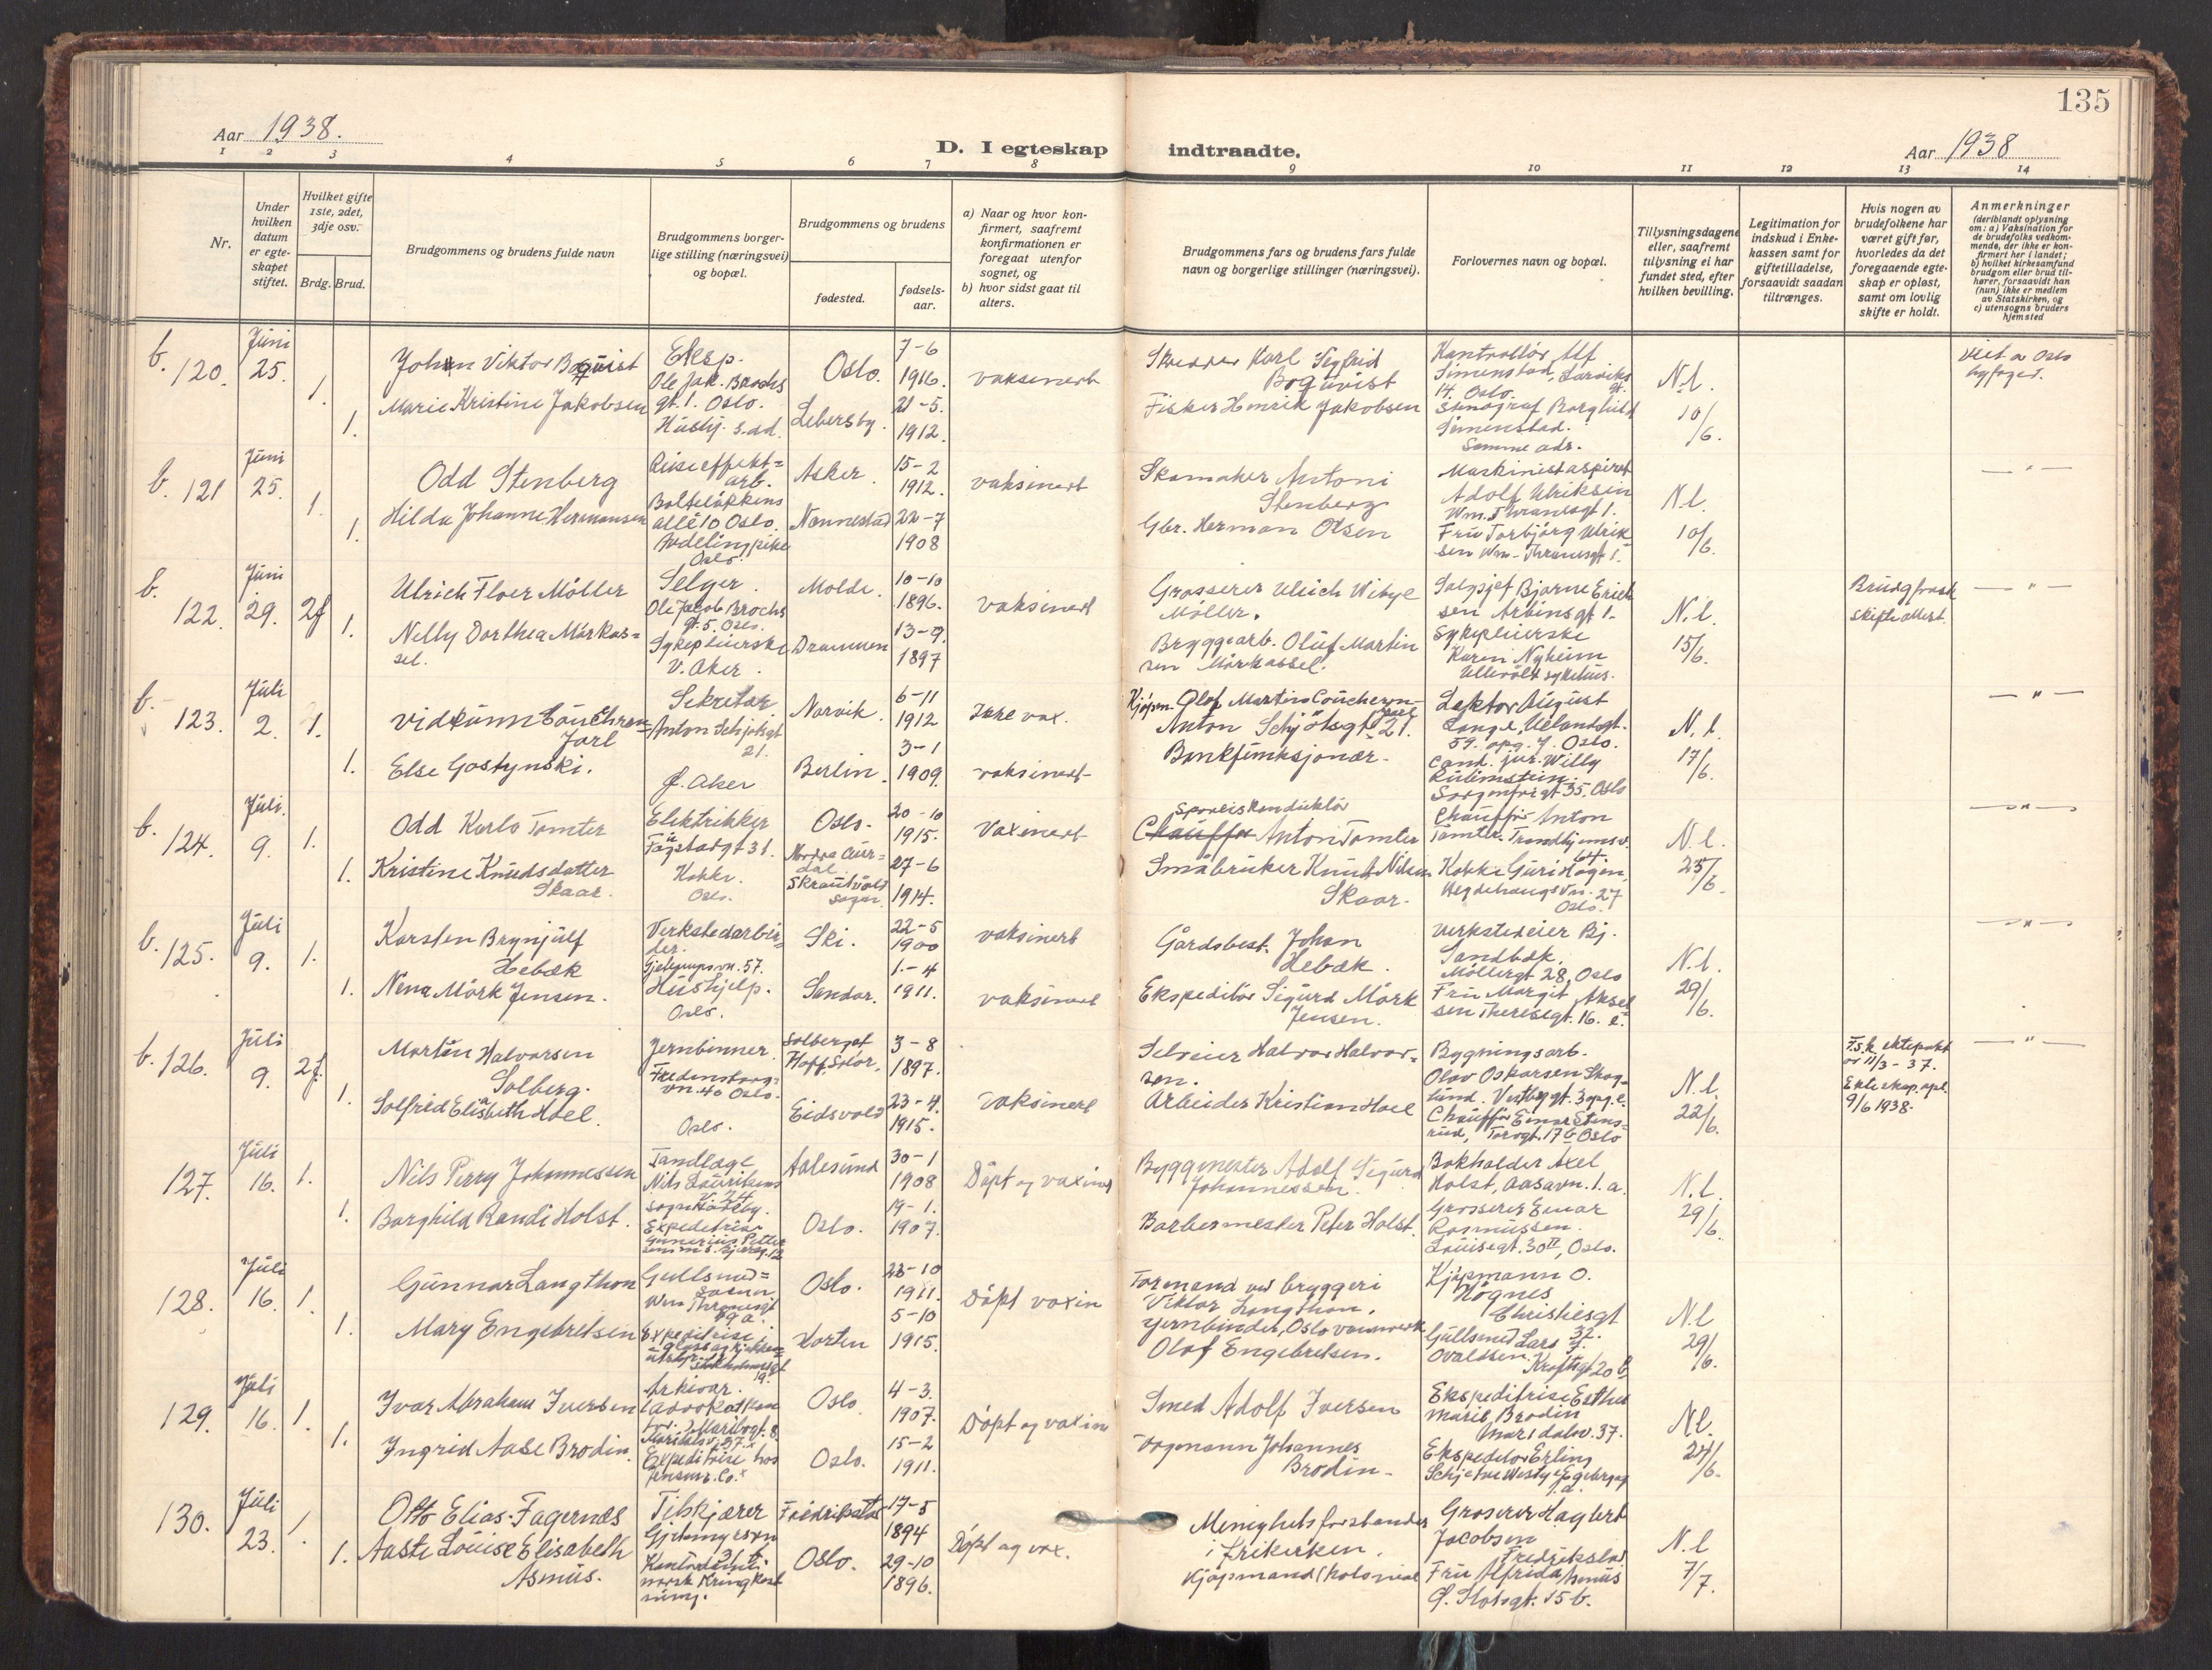 135
Aar 1938.
D. I egteskap indtraadte.
Aar 1938
1 2 3 4 5 6 7 8 9 10 11 12 13 14
Nr.
Under hvilken datum er egteskapet stiftet.
Hvilket gifte 1ste, 2det, 3dje osv.
Brdg. Brud.
Brudgommens og brudens fulde navn
Brudgommens borgerlige stilling (næringsvei) og bopæl.
Brudgommens og brudens
fødested.
fødselsaar.
a) Naar og hvor konfirmert, saafremt konfirmationen er foregaat utenfor sognet, og
b) hvor sidst gaat til alters.
Brudgommens fars og brudens fars fulde navn og borgerlige stillinger (næringsvei).
Forlovernes navn og bopæl.
Tillysningsdagene eller, saafremt tillysning ei har fundet sted, efter hvilken bevilling.
Legitimation for indskud i Enkekassen samt for giftetilladelse, forsaavidt saadan tiltrænges.
Hvis nogen av brudefolkene har været gift før, hvorledes da det foregaaende egteskap er opløst, samt om lovlig skifte er holdt.
Anmerkninger (deriblandt oplysning om: a) Vaksination for de brudefolks vedkommende, der ikke er konfirmert her i landet; b) hvilket kirkesamfund brudgom eller brud tilhører, forsaavidt han (hun) ikke er medlem av Statskirken, og c) utensogns bruders hjemsted
b. 120. Juni 25. 1. Johan Viktor Boquist
Eksp. Ole Jak. Brochs gt. 1. Oslo.
Oslo. 7-6 1916. vaksinert
Skredder Karl Sigfrid Boquist
Kontrollör Alf Simenstad, Larviks gt. 14. Oslo.
N.l. 10/6.
viet av Oslo byfoged.
1. Marie Kristine Jakobsen
Husbj. s. ad.
Lebersby. 21-5. 1912.
Fisker Henrik Jakobsen
Stenograf Borghild Simenstad. Samme adr.
b. 121 Juni 25. 1. Odd Stenberg
arb. Bolteløkkens allé 10 Oslo.
Asker. 15-2 1912. vaksinert
Skomaker Antoni Stenberg
Maskinistaspirant Adolf Ulriksen Wm. Thranesgt 1.
N.l. 10/6.
— " —
1. Hilda Johanne Hermansen
Avdelingpike Oslo.
Nannestad 22-7 1908
Gbr. Herman Olsen
Fru Torbjörg Ulriksen Wm. Thranesgt 1.
b. 122. Juni 29. 2g Ulrich Floer Möller
Selger. Ole Jacob Brochs gt. 5. Oslo.
Molde. 10-10 1896. vaksinert
Grosserer Ulrich Wibye Möller.
Salgsjef Bjarne Erichsen Arbinsgt 1.
N.l. 15/6.
Brudg. frask. skifteattest.
— " —
1. Nelly Dorthea Mörkassel.
Sykepleierske V. Aker.
Drammen 13-9. 1897
Bryggearb. Oluf Martinsen Mörkassel.
Sykepleierske Karen Nyheim Ullevåll sykehus.
b. 123. Juli 2. 1. Vidkunn Coucheron-Jarl
Sekretær. Anton Schjötsgt 21.
Narvik. 6-11 1912 Ikke vax.
Kjöpm. Olaf Martins Coucheron-Jarl Anton Schjötsgt 21.
Lektor August Lange, Uelandsgt. 59. opg. 7. Oslo.
N.l. 17/6.
— " —
1. Else Gostynski.
f. Aker
Berlin. 3-1 1909. vaksinert
Bankfunksjonær.
Cand. jur. Willy Rubinstein. Sorgenfrigt 35. Oslo
b. 124. Juli. 9. 1. Odd Karlo Tomter
Elektrikker Fagstadgt 31.
Oslo. 20-10 1915. Vaxinert
Sporveiskonduktör Anton Tomter
Chaufför Anton Tomter. Trondhjemsv. 64.
N.l. 25/6.
— " —
1. Kristine Knudsdatter Skaar.
Kokke. Oslo.
Nordre Aurdal Skrautvåld sogn. 27-6 1914.
Småbruker Knut Nilsen Skaar.
Kokke Guri Hagen, Hegdehaugsvn. 27 Oslo.
b. 125. Juli 9. 1. Karsten Brynjulf Hebæk
Verkstedarbeider. 57.
Ski. 22-5 1900 vaksinert
Gårdsbest. Johan Hebæk.
Verkstedeier Bj. Sandbæk. Möllergt 28, Oslo
N.l. 29/6.
— " —
1. Nena Mörk Jensen.
Hushjelp. Oslo.
Sandar. 1.-4 1911. vaksinert
Ekspeditör Sigurd Mörk Jensen.
Fru Margit Akselsen Theresegt. 16. e.
b. 126. Juli 9. 2g. Martin Halvorsen Solberg.
Jernbinner Fredensborgvn. 40 Oslo.
Solberget Hoff, Solör. 3-8 1897.
Selveier Halvor Halvorsen.
Bygningsarb. Olav Oskarsen Skoglund. Vestbygt. 3 opg. e.
N.l. 22/6.
F.s.k. ektepakt av 11/3-37. Ekteskap opl. 9/6 1938.
— " —
1. Solfrid Elisabeth Hoel.
Oslo.
Eidsvold 23-4. 1915. Vaksinert
Arbeider Kristian Hoel
Chaufför Einar Stensrud, Torggt. 17b Oslo
127. Juli 16. 1. Nils Perry Johannessen
Tandlæge Nils Lauritsens v. 24 Sogn Haveby.
Aalesund 30-1 1908 Döpt og vaxinert
Byggmester Adolf Sigurd Johannessen.
Bokholder Axel Holst, Aasavn. 1. a.
N.l. 29/6.
1. Borghild Randi Holst.
Expeditrise Gunerius Pettersens
Oslo. 19-1. 1907.
Barbermester Peter Holst.
Grosserer Einar Rasmussen. Louisegt. 30 II, Oslo.
128. Juli 16. 1. Gunnar Langthon
Gullsmed Wm Thranesgt 59 a.
Oslo. 23-10 1911. Döpt vaxin
Formand ved bryggeri Viktor Langthon.
Kjöpmann O. Högnes Christiesgt 37.
N.l 29/6.
1. Mary Engebretsen
Expeditrise i glass og kjökkenutstyr.
Horten 5-10 1915.
Jernbinder, Oslo vannverk Olaf Engebretsen.
Gullsmed Lars Ovaldsen. Kroftsgt 20 b.
129. Juli 16. 1. Ivar Abraham Iversen
Arkivar. i advokatkontor. Maribogt. 8. Maridalsv. 37.
Oslo 4-3. 1907. Döpt og vaxin
Smed Adolf Iversen
Ekspeditrise Esther Marie Brodin Maridalsv. 37.
N.l. 24/6.
1. Ingrid Aase Brodin.
Expeditrise hos Jensen & Co.
Oslo. 15-2 1911.
Vognmann Johannes Brodin.
Ekspeditör Erling
130. Juli 23. 1. Otto Elias Fagernæs
Tilskjærer
Fredrikstad 17-5 1894 Döpt og vax.
Menighetsforstander i frikirken.
Grosserer Hagbert Jacobsen Fredrikstad
N.l 7/7.
1. Aaste Louise Elisabeth Asmus.
norsk Kringkastning.
Oslo. 29-10 1896.
Kjöpmand i kolonial
Fru Alfrida Asmus G. Slotsgt. 15 b.